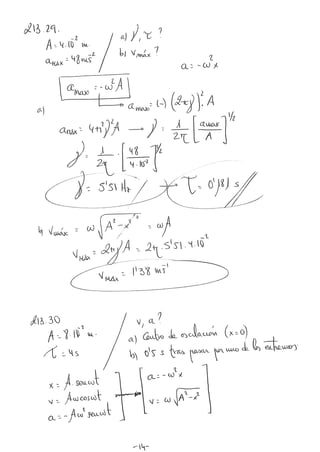 213.29.
A = 4.10⁻² m
a_max = 48 ms⁻²
a) ν, τ ?
b) v_máx ?
a = -ω²x
a_max = -ω²A
a)
a_max = (-) (2πν)². A
a_max = 4π²ν²A → ν = 1/2π [a_max/A]^1/2
ν = 1/2π . [48/4.10⁻²]^1/2
ν = 5'51 Hz → τ = 0'181 s
b) v_máx = ω √A²-x² = ωA
v_máx = 2πνA = 2π.5'51.4.10⁻²
v_máx = 1'38 ms⁻¹
213.30
A = 8.10⁻² m.
τ = 4s
v, a ?
a) Centro de oscilación (x=0)
b) 0'5 s tras pasar por uno de los extremos
x = A.senωt
v = Aωcosωt
a = -Aω²senωt
a = -ω²x
v = ω √A²-x²
-14-